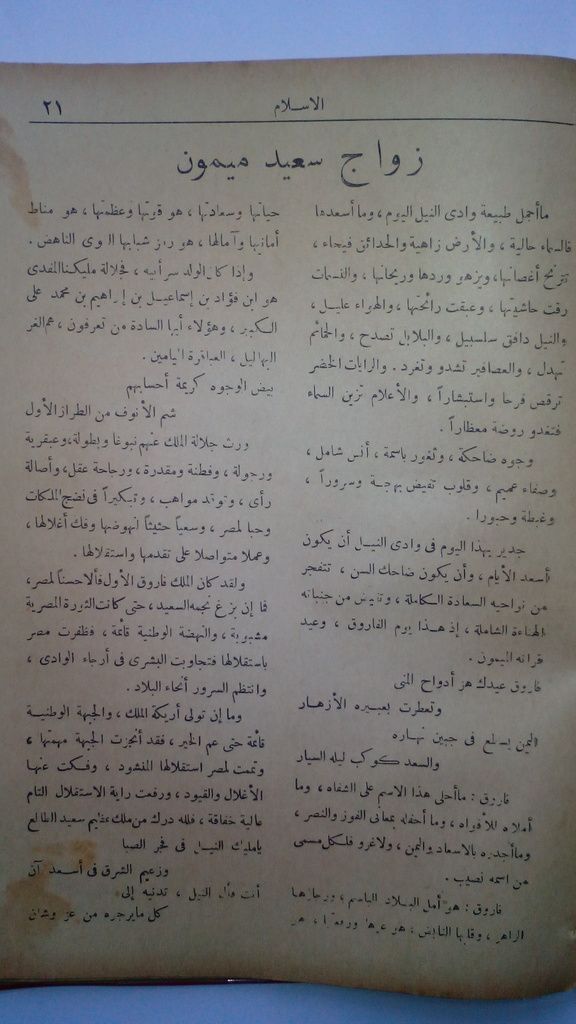 الاسلام
٢١
زواج سعيد ميمون
ماأجمل طبيعة وادى النيل اليوم، وما أسعدها
فالسماء حالية ، والأرض زاهية والحدائق فيحاء ،
تترنح أغصانها، ويزهو وردها وريحانها ، والنسمات
رقت حاشيتها ، وعبقت رائحتها ، والهواء عليل ،
والنيل دافق سلسبيل ، والبلابل تصدح ، والحمائم
تهدل ، والعصافير تشدو وتغرد . والرايات الخضر
ترقص فرحا واستبشاراً ، والأعلام تزين السماء
فتغدو روضة معطاراً .
وجوه ضاحكة ، وثغور باسمة ، أنس شامل ،
وصفاء عميم ، وقلوب تفيض بهجة وسروراً ،
وغبطة وحبورا .
جدير بهذا اليوم فى وادى النيل أن يكون
أسعد الأيام ، وأن يكون ضاحك السن ، تتفجر
من نواحيه السعادة الكاملة ، وتفيض من جنباته
الهناءة الشاملة ، إذ هذا يوم الفاروق ، وعيد
قرانه الميمون .
فاروق عيدك هز أدواح المنى
وتعطرت بعبيره الأزهار
اليمن يسطع فى جبين نهاره
والسعد كوكب ليله السيار
فاروق : ماأحلى هذا الاسم على الشفاه ، وما
أملأه للأفواه ، وما أحفله بمعانى الفوز والنصر ،
وماأجدره بالاسعاد واليمن ، ولاغرو فلكل مسمى
من اسمه نصيب .
فاروق : هو أمل البلاد الباسم ، ورجاؤها
الزاهر ، وقلبها النابض ، هو عزها ورفعتها ، هو
حياتها وسعادتها ، هو قوتها وعظمتها ، هو مناط
أمانيها وآمالها ، هو رمز شبابها القوى الناهض .
وإذا كان الولد سر أبيه ، فجلالة مليكنا المفدى
هو ابن فؤاد بن إسماعيل بن إبراهيم بن محمد على
الكبير ، وهؤلاء أيها السادة من تعرفون ، هم الغر
البهاليل ، العباقرة الميامين .
بيض الوجوه كريمة أحسابهم
شم الأنوف من الطراز الأول
ورث جلالة الملك عنهم نبوغا وبطولة، وعبقرية
ورجولة ، وفطنة ومقدرة ، ورجاحة عقل، وأصالة
رأى ، وتوقد مواهب ، وتبكيراً فى نضج الملكات
وحبا لمصر ، وسعياً حثيثاً لنهوضها وفك أغلالها ،
وعملا متواصلا على تقدمها واستقلالها .
ولقد كان الملك فاروق الأول فألا حسناً لمصر،
فما إن بزغ نجمه السعيد، حتى كانت الثورة المصرية
مشبوبة ، والنهضة الوطنية قائمة ، فظفرت مصر
باستقلالها فتجاوبت البشرى فى أرجاء الوادى ،
وانتظم السرور أنحاء البلاد .
وما إن تولى أريكة الملك ، والجبهة الوطنية
قائمة حتى عم الخير ، فقد أنجزت الجبهة مهمتها ،
وتممت لمصر استقلالها المنشود ، وفكت عنها
الأغلال والقيود ، ورفعت راية الاستقلال التام
عالية خفاقة ، فلله درك من ملك عظيم سعيد الطالع
يامليك النيل فى فجر الصبا
وزعيم الشرق فى أسعد آن
أنت فأل النيل ، تدنيه إلى
كل مايرجوه من عز وشان